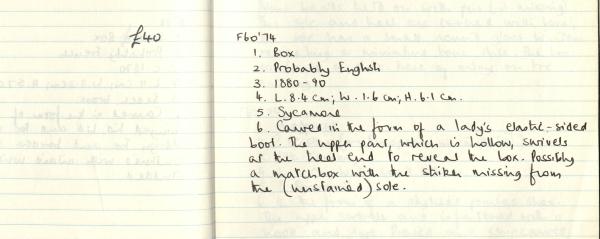 £40
F60'74
1. Box
2. Probably English
3. 1880-90
4. L. 8.4 cm; W. 1.6 cm; H. 6.1 cm.
5. Sycamore
6. Carved in the form of a lady's elastic-sided
boot. The upper part, which is hollow, swivels
at the heel end to reveal the box. Possibly
a matchbox with the striker missing from
the (unstained) sole.